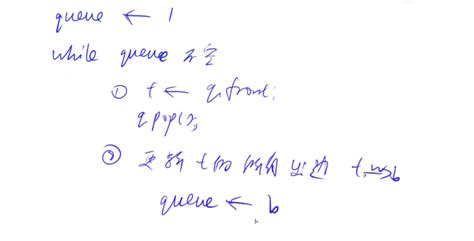 queue ← 1
while queue 不空
① t ← q.front;
q.pop();
② 更新 t 的所有出边 t -w-> b
queue ← b